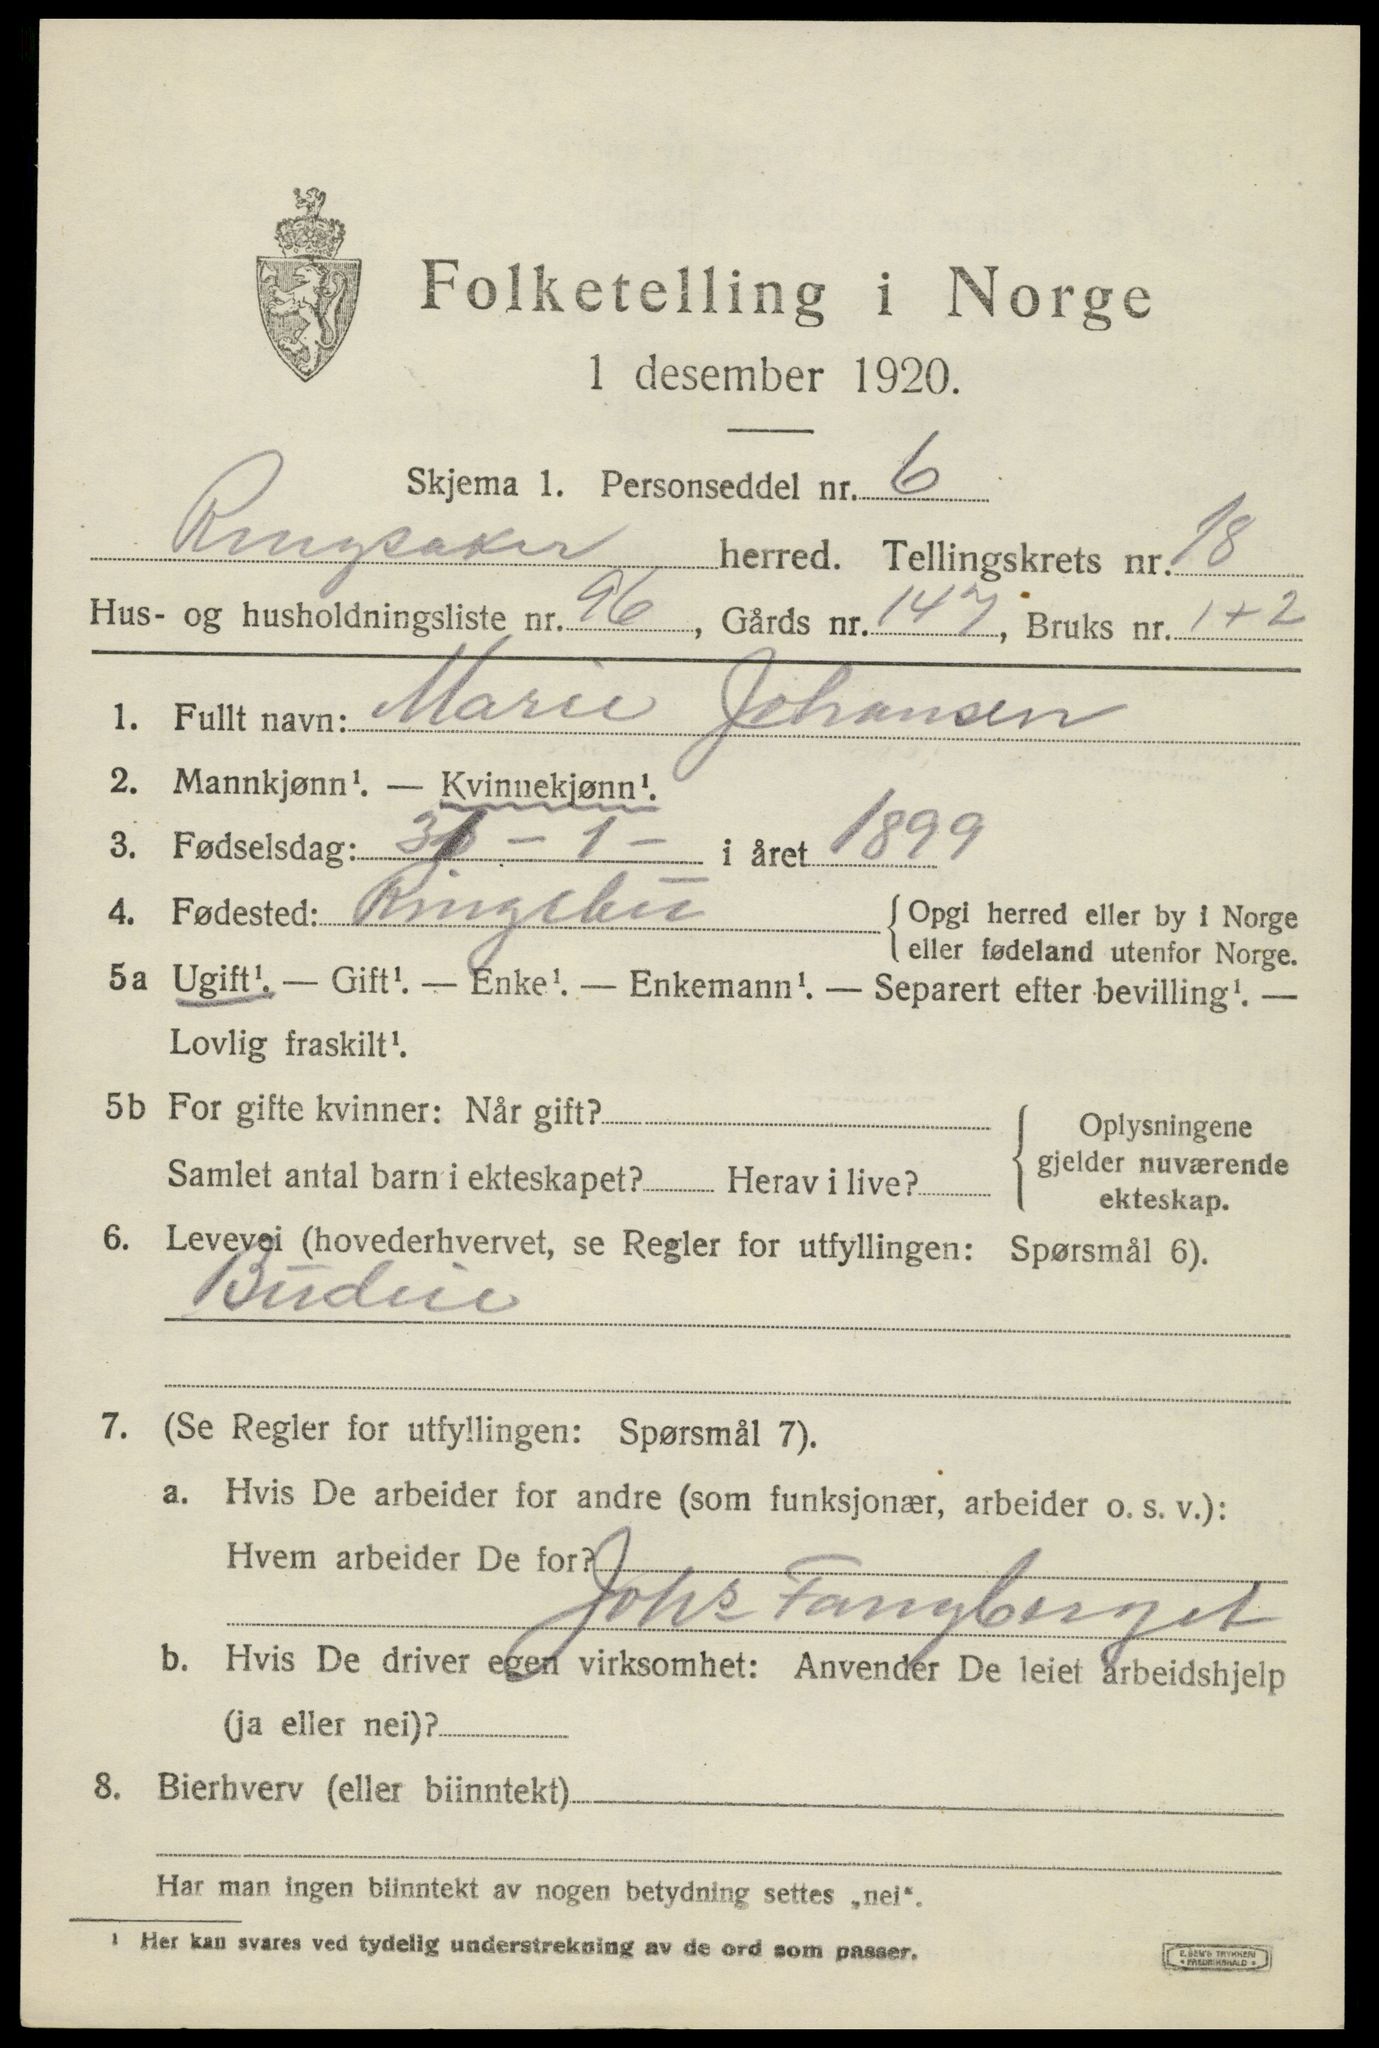 Folketelling i Norge
1 desember 1920.
Skjema 1. Personseddel nr. 6
Ringsaker herred. Tellingskrets nr. 18
Hus- og husholdningsliste nr. 96, Gårds nr. 147, Bruks nr. 1+2
1. Fullt navn: Marie Johansen
2. Mannkjønn¹. — Kvinnekjønn¹.
3. Fødselsdag: 31 - 1 - i året 1899
4. Fødested: Ringebu { Opgi herred eller by i Norge
eller fødeland utenfor Norge.
5a Ugift¹. — Gift¹. — Enke¹. — Enkemann¹. — Separert efter bevilling¹. —
Lovlig fraskilt¹.
5b For gifte kvinner: Når gift?
Samlet antal barn i ekteskapet? Herav i live?
{ Oplysningene
gjelder nuværende
ekteskap.
6. Levevei (hovederhvervet, se Regler for utfyllingen: Spørsmål 6).
Budeie
7. (Se Regler for utfyllingen: Spørsmål 7).
a. Hvis De arbeider for andre (som funksjonær, arbeider o. s. v.):
Hvem arbeider De for?
Johs Fangberget
b. Hvis De driver egen virksomhet: Anvender De leiet arbeidshjelp
(ja eller nei)?
8. Bierhverv (eller biinntekt)
Har man ingen biinntekt av nogen betydning settes „nei“.
¹ Her kan svares ved tydelig understrekning av de ord som passer.
E. SEM'S TRYKKERI
• FREDRIKSHALD •